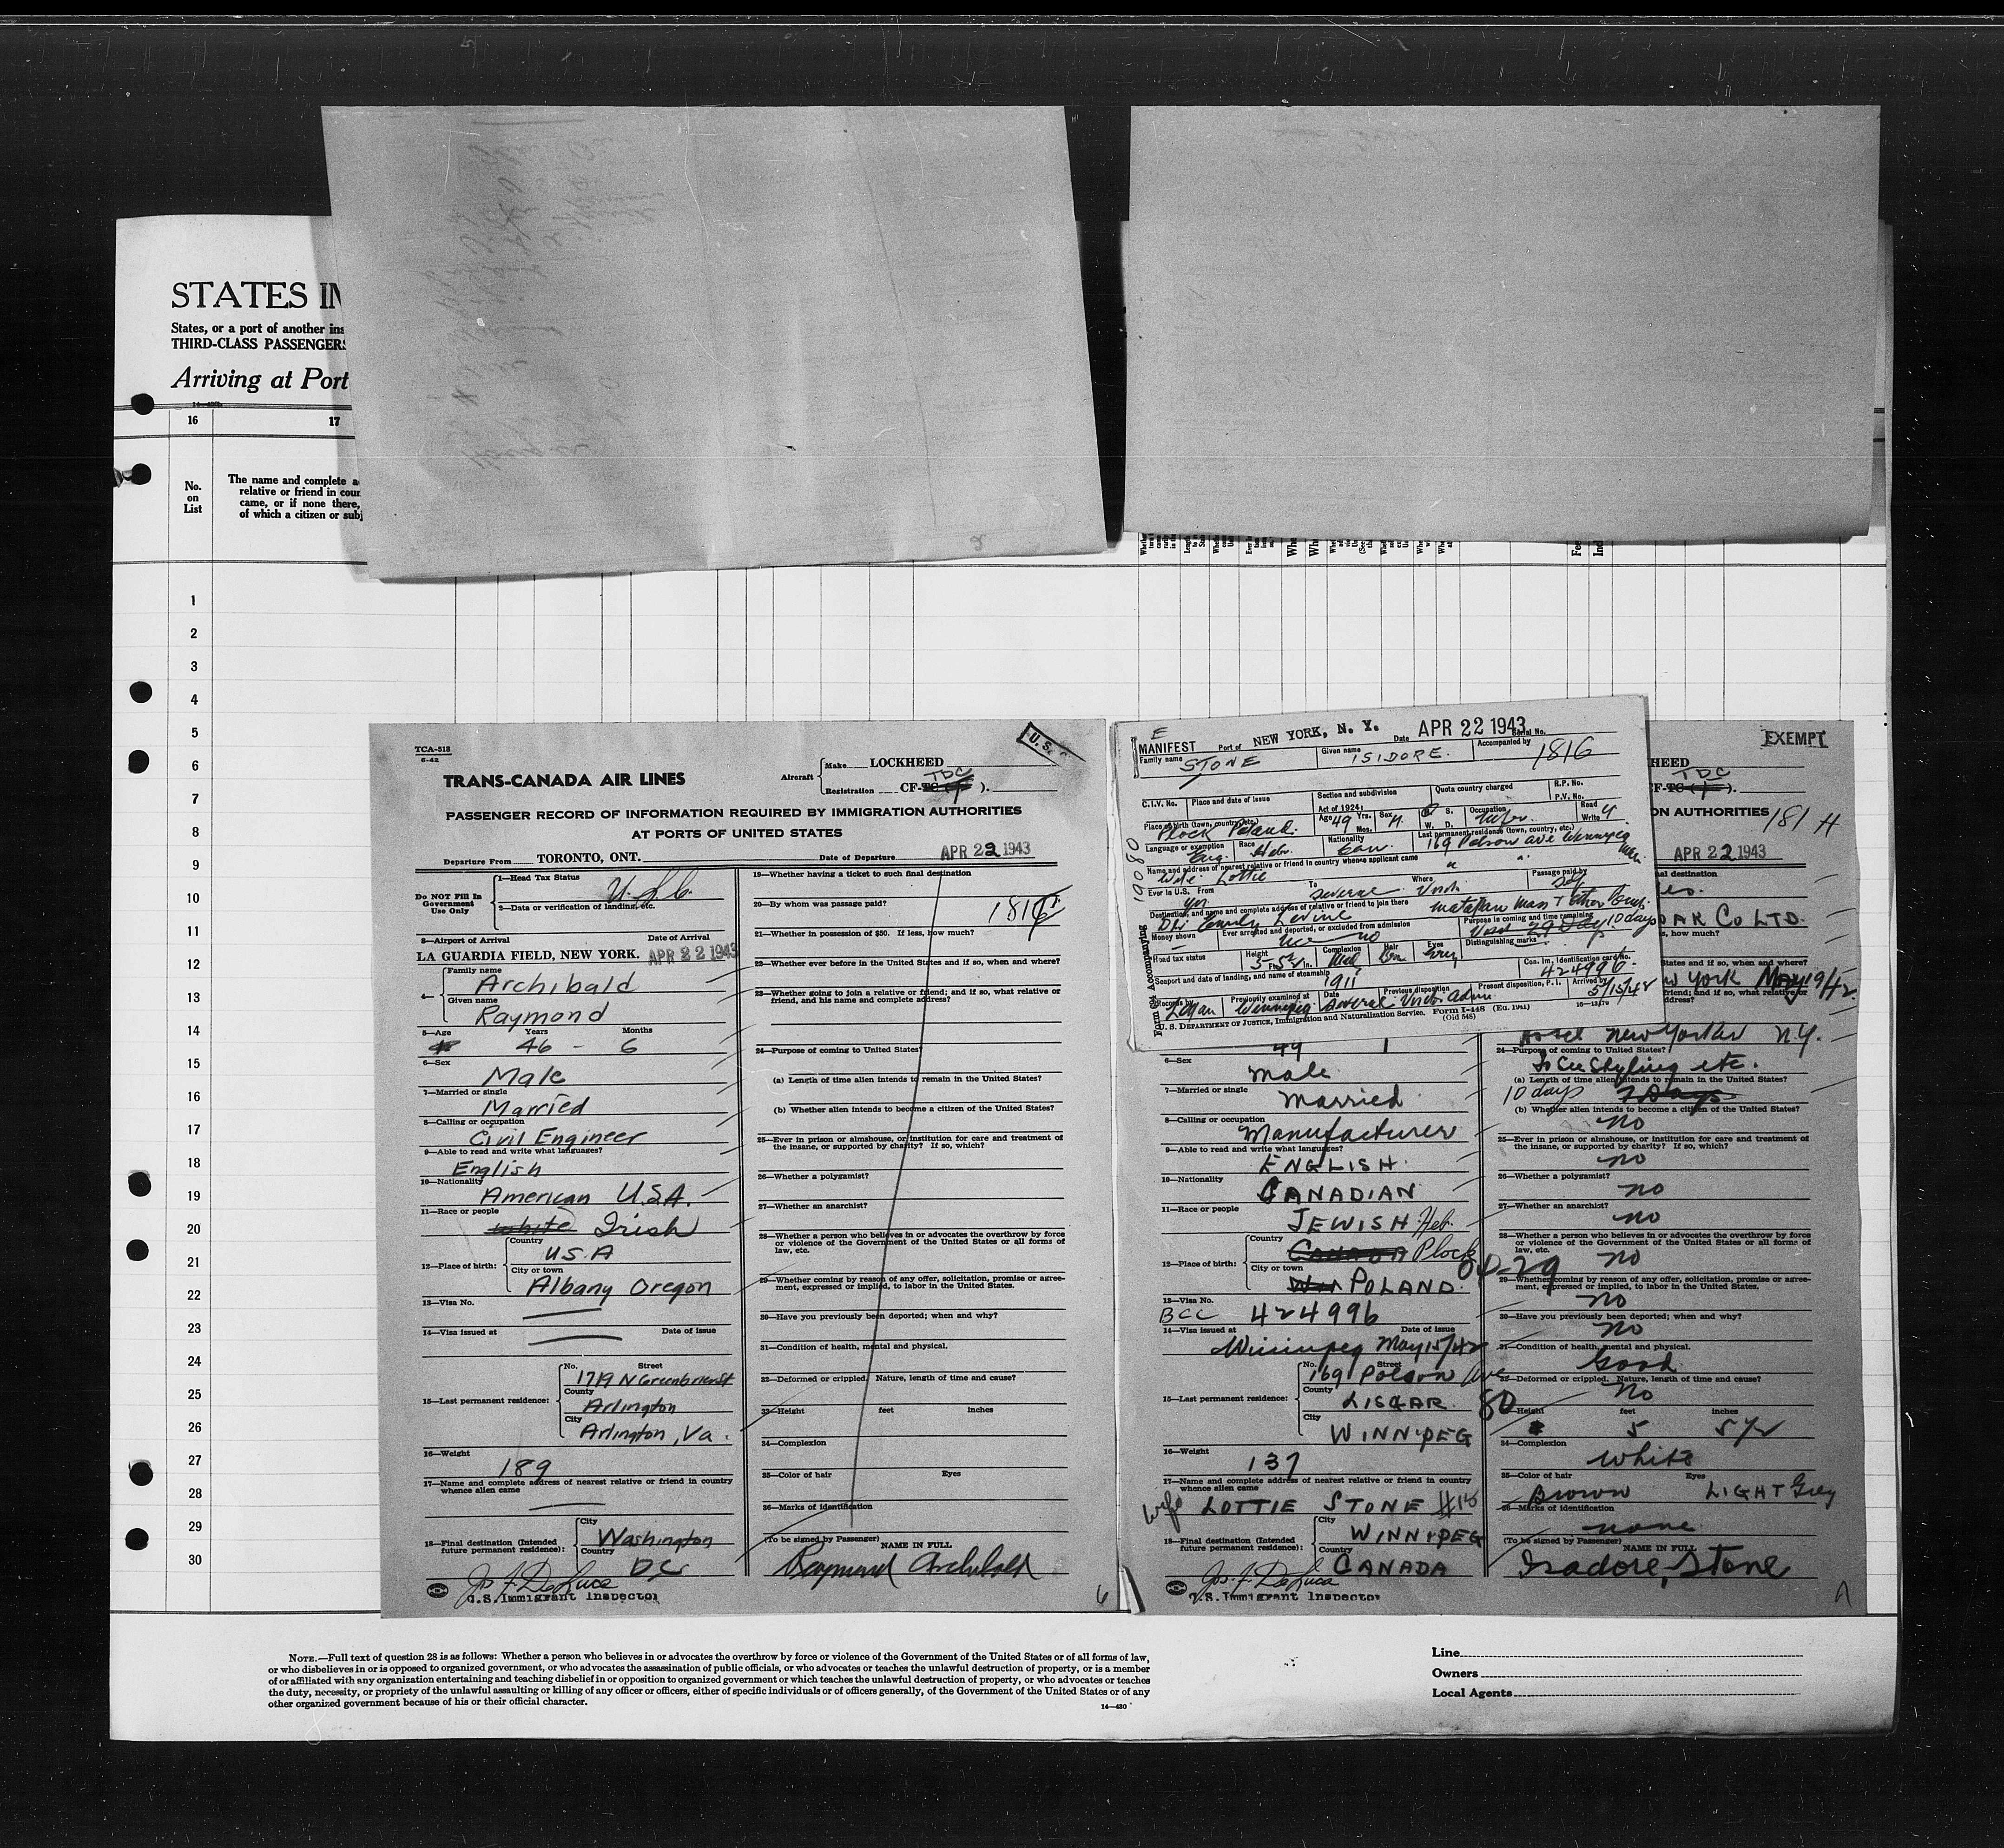 STATES IN
States, or a port of another ins
THIRD-CLASS PASSENGERS
Arriving at Port
16 17
No.
on
List
The name and complete a
relative or friend in coun
came, or if none there,
of which a citizen or subj
1
2
3
4
5
6
7
8
9
10
11
12
13
14
15
16
17
18
19
20
21
22
23
24
25
26
27
28
29
30
TCA-518
6-42
U.S.
TRANS-CANADA AIR LINES
Aircraft
Make LOCKHEED
TDC
Registration CF-TC ( ).
PASSENGER RECORD OF INFORMATION REQUIRED BY IMMIGRATION AUTHORITIES
AT PORTS OF UNITED STATES
Departure From TORONTO, ONT. Date of Departure APR 22 1943
Do NOT Fill In
Government
Use Only
1—Head Tax Status
2—Data or verification of landing, etc.
3—Airport of Arrival Date of Arrival
LA GUARDIA FIELD, NEW YORK. APR 22 1943
4—
Family name
Archibald
Given name
Raymond
5—Age Years Months
46 - 6
6—Sex
Male
7—Married or single
Married
8—Calling or occupation
Civil Engineer
9—Able to read and write what languages?
English
10—Nationality
American U.S.A.
11—Race or people
white Irish
12—Place of birth:
Country
U.S.A
City or town
Albany Oregon
13—Visa No.
14—Visa issued at Date of issue
15—Last permanent residence:
No. Street
1719 N Greenbrier St
County
Arlington
City
Arlington, Va.
16—Weight
189
17—Name and complete address of nearest relative or friend in country
whence alien came
18—Final destination (Intended
future permanent residence):
City
Washington
Country
DC
Jos. F. DeLuca
U.S. Immigrant Inspector
19—Whether having a ticket to such final destination
20—By whom was passage paid?
1816
21—Whether in possession of $50. If less, how much?
22—Whether ever before in the United States and if so, when and where?
23—Whether going to join a relative or friend; and if so, what relative or
friend, and his name and complete address?
24—Purpose of coming to United States?
(a) Length of time alien intends to remain in the United States?
(b) Whether alien intends to become a citizen of the United States?
25—Ever in prison or almshouse, or institution for care and treatment of
the insane, or supported by charity? If so, which?
26—Whether a polygamist?
27—Whether an anarchist?
28—Whether a person who believes in or advocates the overthrow by force
or violence of the Government of the United States or all forms of
law, etc.
29—Whether coming by reason of any offer, solicitation, promise or agree-
ment, expressed or implied, to labor in the United States?
30—Have you previously been deported; when and why?
31—Condition of health, mental and physical.
32—Deformed or crippled. Nature, length of time and cause?
33—Height feet inches
34—Complexion
35—Color of hair Eyes
36—Marks of identification
(To be signed by Passenger)
NAME IN FULL
Raymond Archibald
6
E
MANIFEST Port of NEW YORK, N. Y. Date APR 22 1943 Serial No.
Family name STONE Given name ISIDORE. Accompanied by 1816
C.I.V. No. Place and date of issue Section and subdivision Quota country charged R.P. No.
P.V. No.
Act of 1924:
Place of birth (town, country, etc.) Plock Poland. Age 49 Yrs. Mos. Sex M. S. W. D. Occupation Read Write
Language or exemption Eng. Race Heb. Nationality Can. Last permanent residence (town, country, etc.) 169 Polson Ave Winnipeg Man.
Name and address of nearest relative or friend in country whence applicant came
wife Lottie " "
Ever in U.S. From To Where Passage paid by
yes Several Visits Self
Destination, and name and complete address of relative or friend to join there
Levine Matapan Mass
Money shown Ever arrested and deported, or excluded from admission no Purpose in coming and time remaining
Visit 29 Days 10 days
Head tax status Height 5 Ft. 5½ In. Complexion Med Hair Brn Eyes Grey Distinguishing marks
Seaport and date of landing, and name of steamship 1911 Con. Im. Identification card No. 424996.
Records by Previously examined at Winnipeg Date Several Previous disposition Visitor Adm. Present disposition, P. I. Arrived by 5/15/42
U. S. DEPARTMENT OF JUSTICE, Immigration and Naturalization Service. Form I-448 (Ed. 1941)
(Old 548) 16—13176
Form or Accompanying 19080
EXEMPT
HEED
TDC
F-TC ( ).
N AUTHORITIES
181 H
APR 22 1943
es.
DAK CO LTD.
s, how much?
States and if so, when and where?
w York May 19/42.
friend; and if so, what relative or
address?
Hotel New Yorker N.Y.
49 1
6—Sex
male
7—Married or single
Married
8—Calling or occupation
Manufacturer
9—Able to read and write what languages?
ENGLISH.
10—Nationality
CANADIAN
11—Race or people
JEWISH Heb.
12—Place of birth:
Country
CANADA Plock
City or town
POLAND.
04-29
13—Visa No.
BCC 424996
14—Visa issued at Date of issue
Winnipeg May 15/42
15—Last permanent residence:
No. Street
169 Polson Ave
County
LISGAR. 80
City
WINNIPEG
16—Weight
137
17—Name and complete address of nearest relative or friend in country
whence alien came
wife LOTTIE STONE #15
18—Final destination (Intended
future permanent residence):
City
WINNIPEG
Country
CANADA
Jos. F. DeLuca
U.S. Immigrant Inspector
24—Purpose of coming to United States?
To See Styling etc.
(a) Length of time alien intends to remain in the United States?
10 days 7 Days
(b) Whether alien intends to become a citizen of the United States?
no
25—Ever in prison or almshouse, or institution for care and treatment of
the insane, or supported by charity? If so, which?
no
26—Whether a polygamist?
no
27—Whether an anarchist?
no
28—Whether a person who believes in or advocates the overthrow by force
or violence of the Government of the United States or all forms of
law, etc.
no
29—Whether coming by reason of any offer, solicitation, promise or agree-
ment, expressed or implied, to labor in the United States?
no
30—Have you previously been deported; when and why?
no
31—Condition of health, mental and physical.
Good
32—Deformed or crippled. Nature, length of time and cause?
no
33—Height feet inches
5 5½
34—Complexion
White
35—Color of hair Eyes
Brown LIGHT Grey
36—Marks of identification
none
(To be signed by Passenger)
NAME IN FULL
Isadore, Stone
NOTE.—Full text of question 28 is as follows: Whether a person who believes in or advocates the overthrow by force or violence of the Government of the United States or of all forms of law,
or who disbelieves in or is opposed to organized government, or who advocates the assassination of public officials, or who advocates or teaches the unlawful destruction of property, or is a member
of or affiliated with any organization entertaining and teaching disbelief in or opposition to organized government or which teaches the unlawful destruction of property, or who advocates or teaches
the duty, necessity, or propriety of the unlawful assaulting or killing of any officer or officers, either of specific individuals or of officers generally, of the Government of the United States or of any
other organized government because of his or their official character.
14—430
Line
Owners
Local Agents